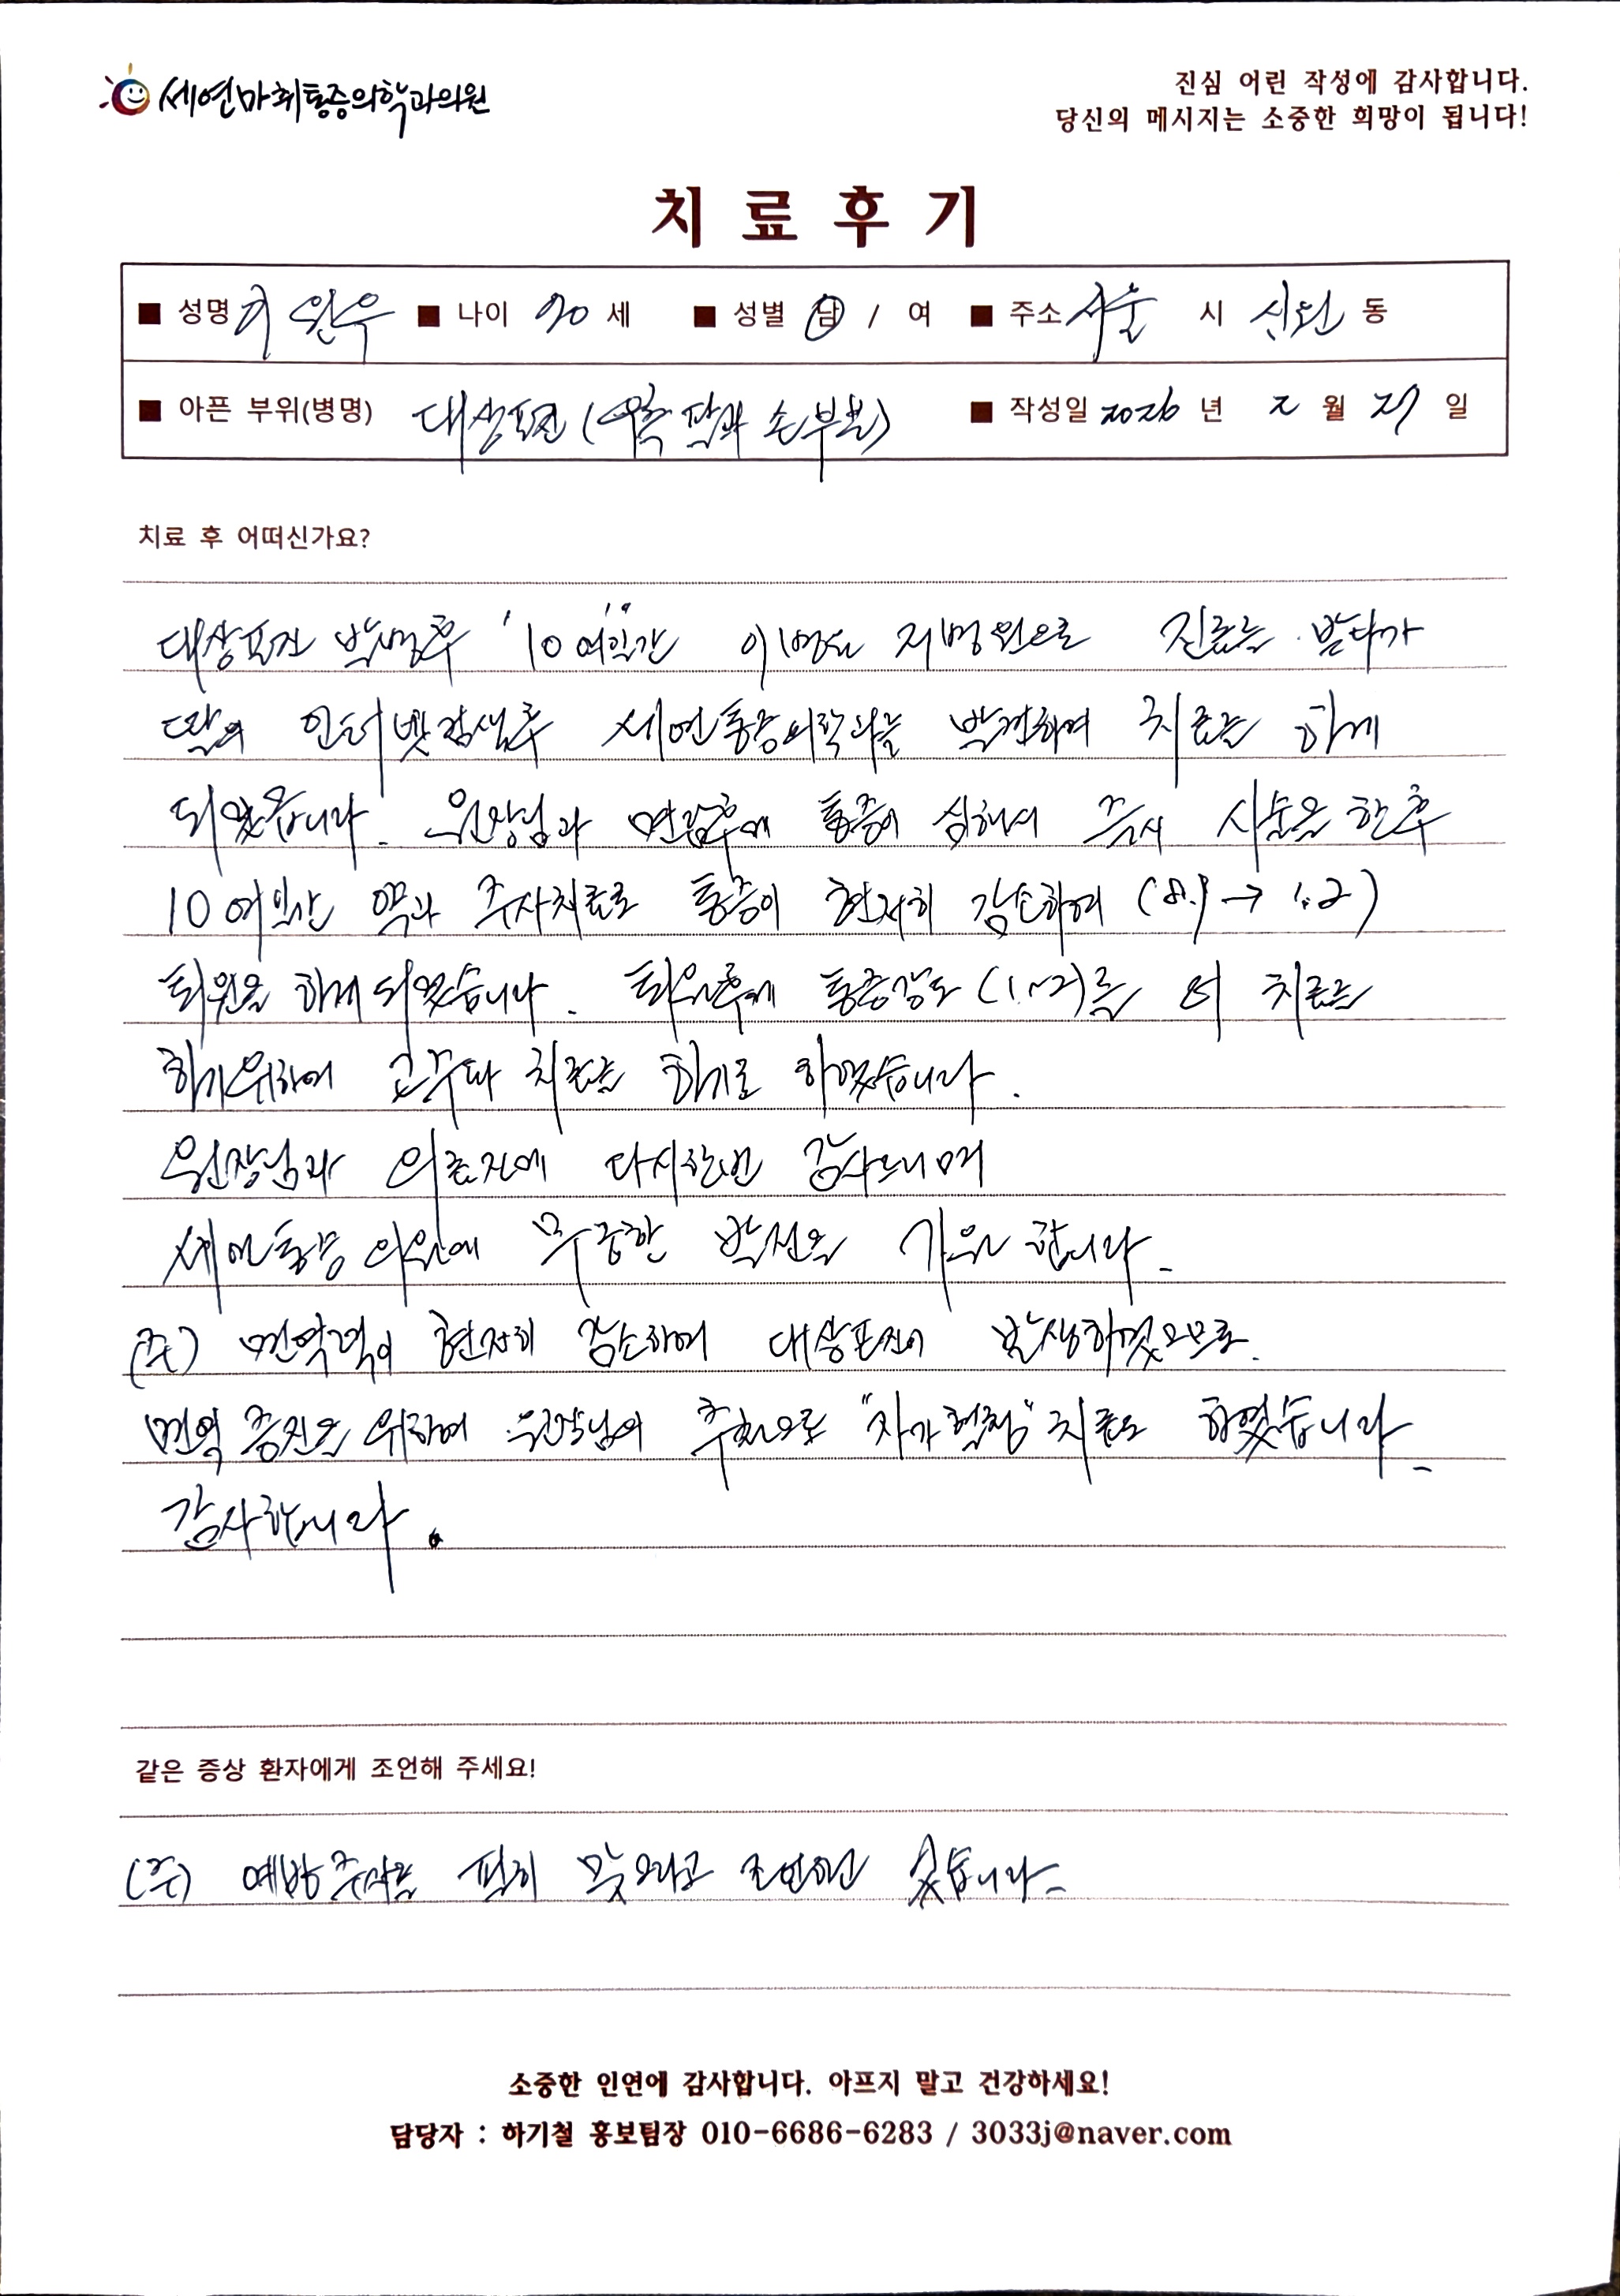 세연마취통증의학과의원
진심 어린 작성에 감사합니다.
당신의 메시지는 소중한 희망이 됩니다!
치료후기
■ 성명 ■ 나이 90 세 ■ 성별 남 / 여 ■ 주소 서울 시 신원 동
■ 아픈 부위(병명) 대상포진 (우측 팔과 손부분) ■ 작성일 2026 년 2 월 27 일
치료 후 어떠신가요?
대상포진 발병후 10여일간 이병원 저병원으로 진료를 받다가
딸의 인터넷검색후 세연통증의학과를 발견하여 치료를 하게
되었습니다. 원장님과 면담후에 통증이 심해서 즉시 시술을 한후
10여일간 약과 주사치료로 통증이 현저히 감소하여 (8.9 → 1.2)
퇴원을 하게 되었습니다. 퇴원후에 통증강도 (1.2)를 더 치료를
하기위하여 치료를 하기로 하였습니다.
원장님과 의료진에 다시한번 감사드리며
세연통증의원에 무궁한 발전을 기원합니다.
(주) 면역력이 현저히 감소하여 대상포진이 발생하였으므로.
면역 증진을 위하여 원장님의 추천으로 "자가혈청" 치료도 하였습니다.
감사합니다.
같은 증상 환자에게 조언해 주세요!
(주) 예방주사를 필히 맞으라고 조언하고 싶습니다.
소중한 인연에 감사합니다. 아프지 말고 건강하세요!
담당자 : 하기철 홍보팀장 010-6686-6283 / 3033j@naver.com